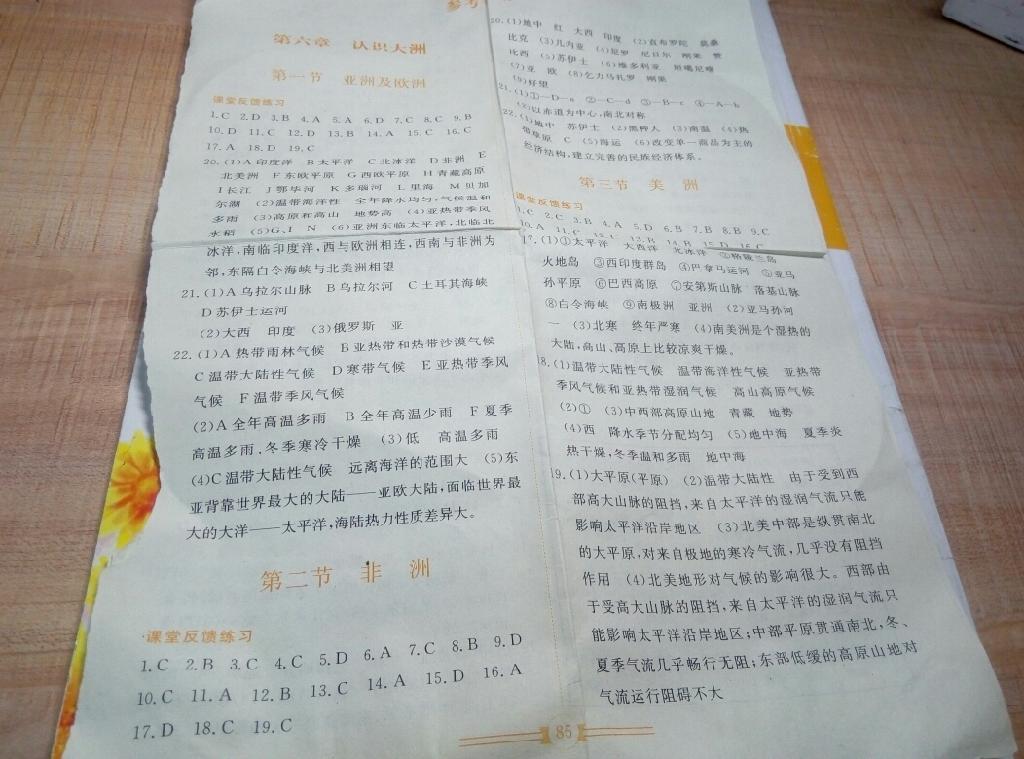 参考
第六章 认识大洲
第一节 亚洲及欧洲
课堂反馈练习
1.C 2.D 3.B 4.A 5.A 6.D 7.C 8.C 9.B
10.D 11.C 12.D 13.B 14.A 15.C 16.C
17.A 18.D 19.C
20.(1)A 印度洋 B 太平洋 C 北冰洋 D 非洲 E
北美洲 F 东欧平原 G 西欧平原 H 青藏高原
I 长江 J 鄂毕河 K 多瑙河 L 里海 M 贝加
尔湖 (2)温带海洋性 全年降水均匀,气候温和
多雨 (3)高原和高山 地势高 (4)亚热带季风
水稻 (5)G、I N (6)亚洲东临太平洋,北临北
冰洋,南临印度洋,西与欧洲相连,西南与非洲为
邻,东隔白令海峡与北美洲相望
21.(1)A 乌拉尔山脉 B 乌拉尔河 C 土耳其海峡
D 苏伊士运河
(2)大西 印度 (3)俄罗斯 亚
22.(1)A 热带雨林气候 B 亚热带和热带沙漠气候
C 温带大陆性气候 D 寒带气候 E 亚热带季风
气候 F 温带季风气候
(2)A 全年高温多雨 B 全年高温少雨 F 夏季
高温多雨,冬季寒冷干燥 (3)低 高温多雨
(4)C 温带大陆性气候 远离海洋的范围大 (5)东
亚背靠世界最大的大陆——亚欧大陆,面临世界最
大的大洋——太平洋,海陆热力性质差异大。
第二节 非洲
课堂反馈练习
1.C 2.B 3.C 4.C 5.D 6.A 7.C 8.B 9.D
10.C 11.A 12.B 13.C 14.A 15.D 16.A
17.D 18.C 19.C
20.(1)地中 红 大西 印度 (2)直布罗陀 莫桑
比克 (3)几内亚 (4)尼罗 尼日尔 刚果 赞
比西 (5)苏伊士 (6)维多利亚 坦噶尼喀
(7)亚 欧 (8)乞力马扎罗 刚果
(9)好望
21.(1)①—D—a ②—C—d ③—B—c ④—A—b
(2)以赤道为中心,南北对称
22.(1)地中 苏伊士 (2)黑种人 (3)南温 (4)热
带草原 C (5)海运 (6)改变单一商品为主的
经济结构,建立完善的民族经济体系。
第三节 美洲
课堂反馈练习
1.C 2.C 3.B 4.A 5.D 6.B 7.B 8.B 9.C
10.A 11.C 13.B 14.B 15.D 16.C
17.(1)①太平洋 大西洋 北冰洋 ②格陵兰岛
火地岛 ③西印度群岛 ④巴拿马运河 ⑤亚马
孙平原 ⑥巴西高原 ⑦安第斯山脉 落基山脉
⑧白令海峡 ⑨南极洲 亚洲 (2)亚马孙河
一 (3)北寒 终年严寒 (4)南美洲是个湿热的
大陆,高山、高原上比较凉爽干燥。
18.(1)温带大陆性气候 温带海洋性气候 亚热带
季风气候和亚热带湿润气候 高山高原气候
(2)① (3)中西部高原山地 青藏 地势
(4)西 降水季节分配均匀 (5)地中海 夏季炎
热干燥,冬季温和多雨 地中海
19.(1)大平原(平原) (2)温带大陆性 由于受到西
部高大山脉的阻挡,来自太平洋的湿润气流只能
影响太平洋沿岸地区 (3)北美中部是纵贯南北
的大平原,对来自极地的寒冷气流,几乎没有阻挡
作用 (4)北美地形对气候的影响很大。西部由
于受高大山脉的阻挡,来自太平洋的湿润气流只
能影响太平洋沿岸地区;中部平原贯通南北,冬、
夏季气流几乎畅行无阻;东部低缓的高原山地对
气流运行阻碍不大
85